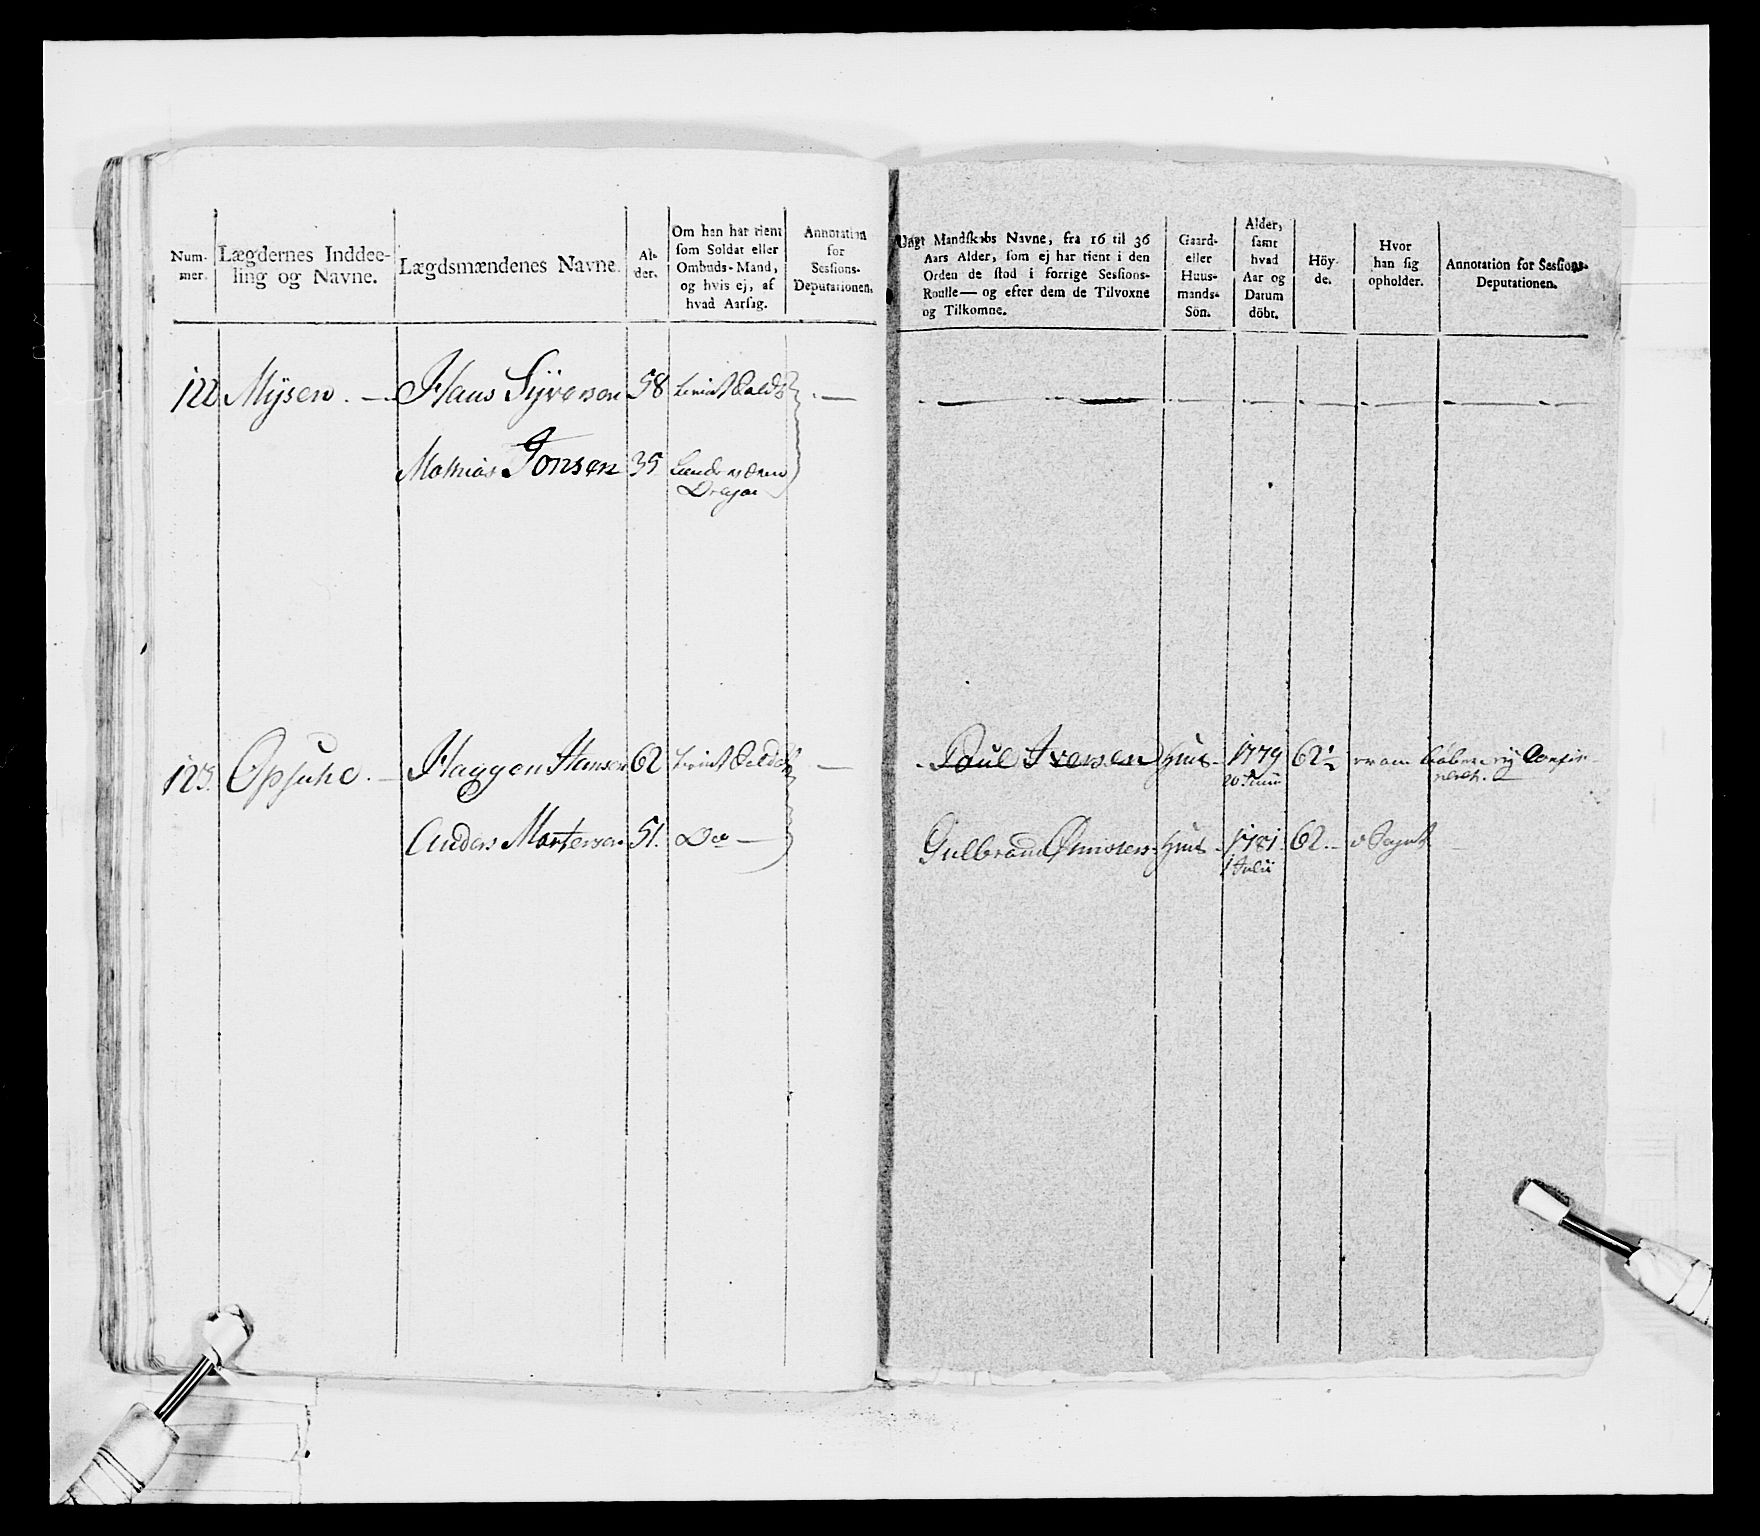 Num-
mer.
Lægdernes Inddee-
ling og Navne.
Lægdsmændenes Navne.
Al-
der.
Om han har tient
som Soldat eller
Ombuds-Mand,
og hvis ej, af
hvad Aarsag.
Annotation
for
Sessions-
Deputationen.
122 Mÿsen. Hans Sÿversen 58
Mathias Jonsen 35
123. Opsuhe. Haggen Hansen 62
Anders Mortensen 51. Do
Ungt Mandskabs Navne, fra 16 til 36
Aars Alder, som ej har tient i den
Orden de stod i forrige Sessions-
Roulle— og efter dem de Tilvoxne
og Tilkomne.
Gaard-
eller
Huus-
mands-
Sön.
Alder,
samt
hvad
Aar og
Datum
döbt.
Höy-
de.
Hvor
han sig
opholder.
Annotation for Sessions-
Deputationen.
Poul Iversen Huus 1779 62½
20 Junii
Gulbrand Huus 1781 62
1 Julii